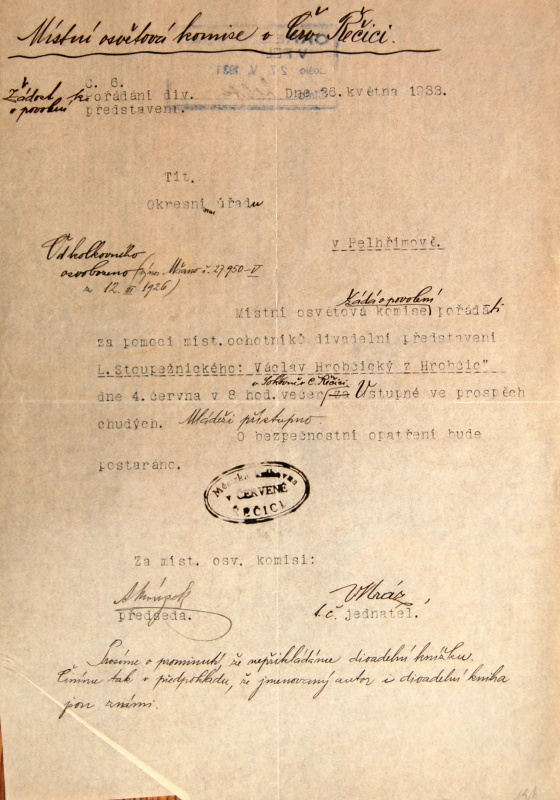 Místní osvětová komise v Čer. Řečici.
Č. 6.
Žádost
o povolení
pořádání div.
představení.
Dne 26. května 1933.
Tit.
Okresní úřadu
v Pelhřimově.
Od kolkovného
osvobozeno (výn. Mšano č. 27950-V
z 12. III 1926)
Žádá o povolení
Místní osvětová komise pořádati
za pomoci míst. ochotníků divadelní představení
L. Stoupežnického: Václav Hrobčický z Hrobčic"
v Sokolovně v C. Řečici
dne 4. června v 8 hod. večer Vstupné ve prospěch
chudých. Mládeži přístupno.
O bezpečnostní opatření bude
postaráno.
v ČERVENÉ
ŘEČICI
Za míst. osv. komisi:
předseda.
VMráz
t.č. jednatel.
Prosíme o prominutí, že nepřikládáme divadelní knížku.
Činíme tak v předpokladu, že jmenovaný autor i divadelní kniha
jsou známi.